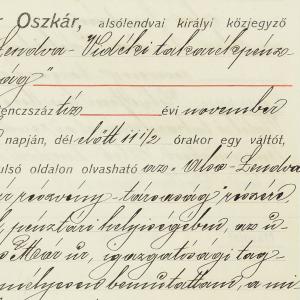 r Oszkár, alsólendvai királyi közjegyző
Lendva-Vidéki takarékpénz
ság"
lenczszáz tíz évi november
napján, dél előtt 11 1/2 órakor egy váltót,
ulsó oldalon olvasható az "Alsó-Lendva
részvény-társaság" részére
pénztári helyiségében, az ü
Mór úr, igazgatósági tag
bemutattam, a mi